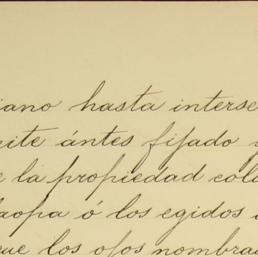 iano hasta interse
ite ántes fijado y
e la propiedad col
aopa ó los egidos
que los ofos nombra